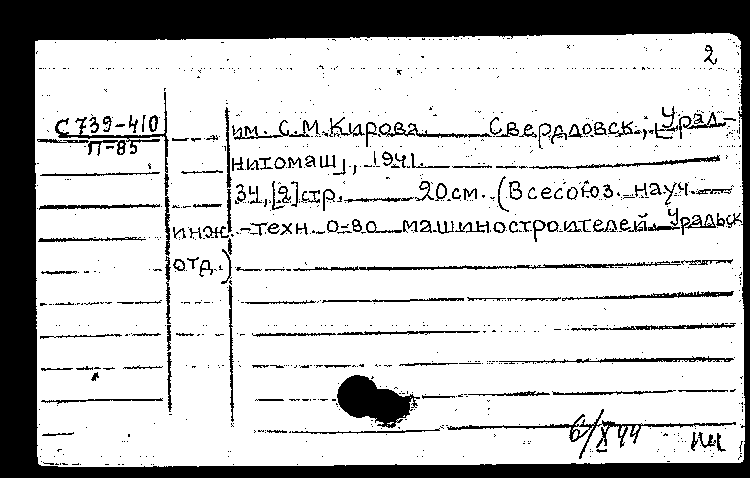 2
С739-410
П-85
им. С.М.Кирова. Свердловск, [Урал-
нитомаш], 1941.
34,[2]стр. 20см. (Всесоюз. науч.
инж.-техн. о-во машиностроителей. Уральск.
отд.)
6/X 44